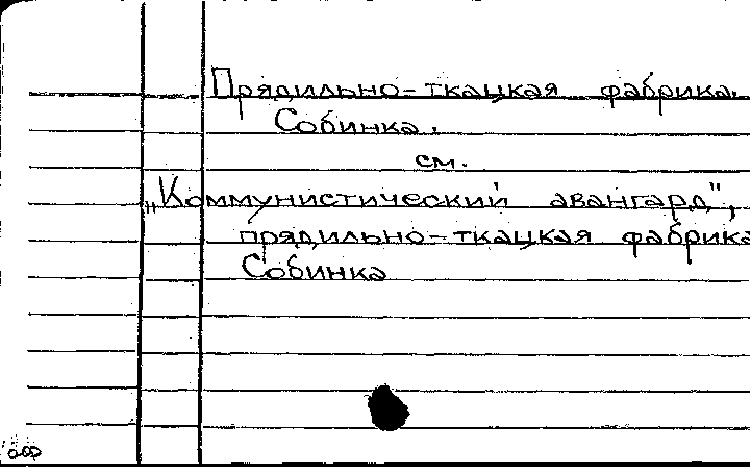 Прядильно-ткацкая фабрика.
Собинка.
см.
„Коммунистический авангард",
прядильно-ткацкая фабрика
Собинка